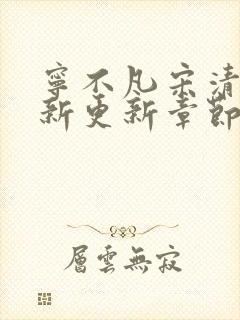 寧不凡宋清
新更新章節
層雲無寂